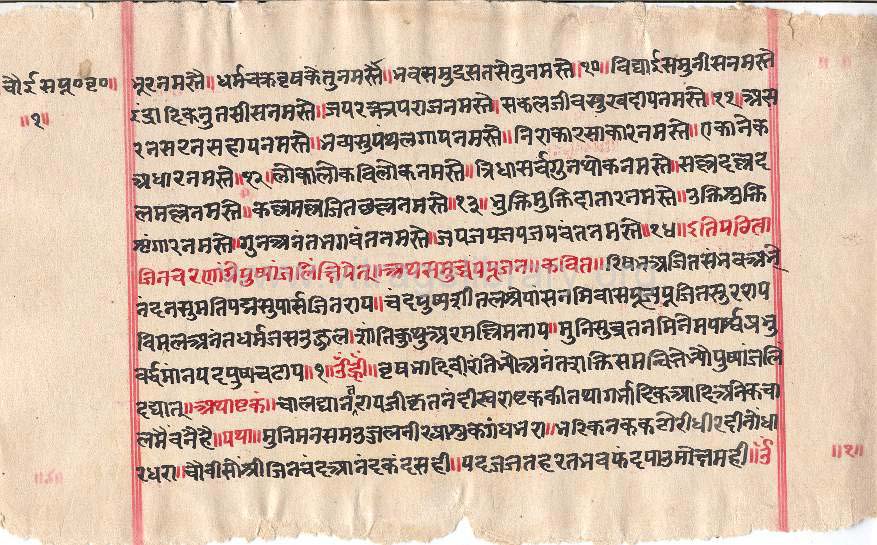 चौईसपू०वृ०॥ भूरनमस्तै॥ धर्मचक्रवृषकेतुनमस्तै॥ भवसमुद्रसतसेतुनमस्तै॥१०॥ विद्याईसमुनीसनमस्तै
॥१॥ इंद्रादिकनुतसीसनमस्तै॥ जयरत्नत्रयराजनमस्तै॥ सकलजीवसुखदायनमस्तै॥११॥ अस
रनसरनसहायनमस्तै॥ भव्यसुपंथलगायनमस्तै॥ निराकारसाकारनमस्तै॥ एकानेक
अधारनमस्तै॥१२॥ लोकालोकविलोकनमस्तै॥ त्रिधासर्वगुनथोकनमस्तै॥ सल्लदल्लद
लमल्लनमस्तै॥ कल्लमल्लजितछल्लनमस्तै॥१३॥ भुक्तिमुक्तिदातारनमस्तै॥ उक्तिसुक्ति
श्रृंगारनमस्तै॥ गुनअनंतभगवंतनमस्तै॥ जयजयजयजयवंतनमस्तै॥१४॥ इतिपठिता
जिनचरणाग्रेपुष्पांजलिंक्षिपेत्॥ अथसमुच्चयपूजन॥ कवित॥ रिषभअजितसंभवअभि
नंदनसुमतिपद्मसुपार्सजिनराय॥ चंदपुष्पशीतलश्रेयांसनमिवासपूज्यपूजितसुरराय
विमलअनंतधर्मजसउज्जल॥ शांतिकुंथुअरमल्लिमनाय॥ मुनिसुव्रतनमिनेमपार्श्वप्रभु
वर्द्धमानपदपुष्पचढाय॥१॥ उँह्रीं॥ वृषभादिवीरांतेभ्यो
द्यात्॥ अथाष्टकं॥ चालद्यानतरायजीकृतनंदीस्वराष्टककीतथागर्भादिकआदिअनेकचा
लमैंबनेहै॥ यथा॥ मुनिमनसमउज्जलनीरप्रासुकगंधभरा॥ भरिकनककटोरीधीरदीनीधा
रधरा॥ चौवीसोंश्रीजिनचंदआनंदकंदसही॥ पदजजतहरतभवफंदपावतमोक्षमही॥ उँ ॥१॥